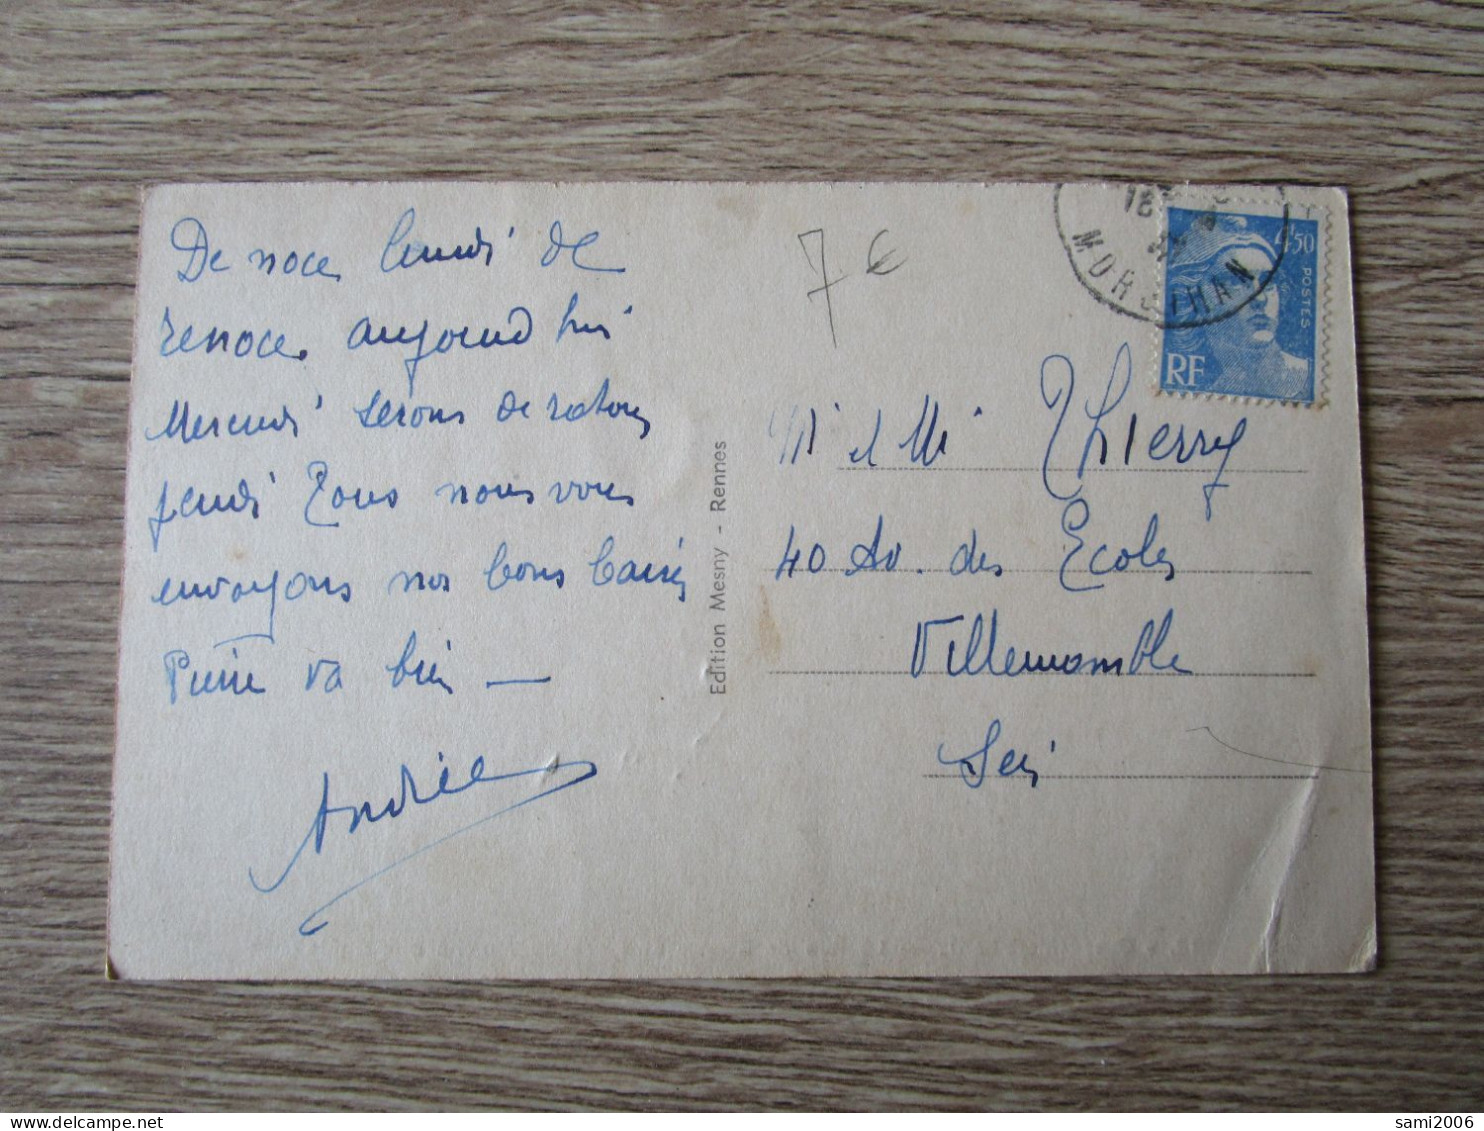 De noce lundi de
renoce aujourd hui
Mercredi serons de retour
jeudi Tous nous vous
envoyons nos bons baisers
Pierre va bien —
Andrée
Edition Mesny - Rennes
7 €
18
MORBIHAN
4F50
POSTES
RF
M et Me Thierry
40 Av. des Ecoles
Villemomble
Seine
delcampe.net
sami2006